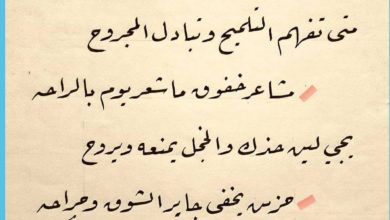 متى تفهم التلميح وتبادل المجروح
مشاعر خفوق ما شعر يوم بالراحه
يجي لين حذك والخجل يمنعه ويروح
حزين يخفى جاير الشوق وجراحه